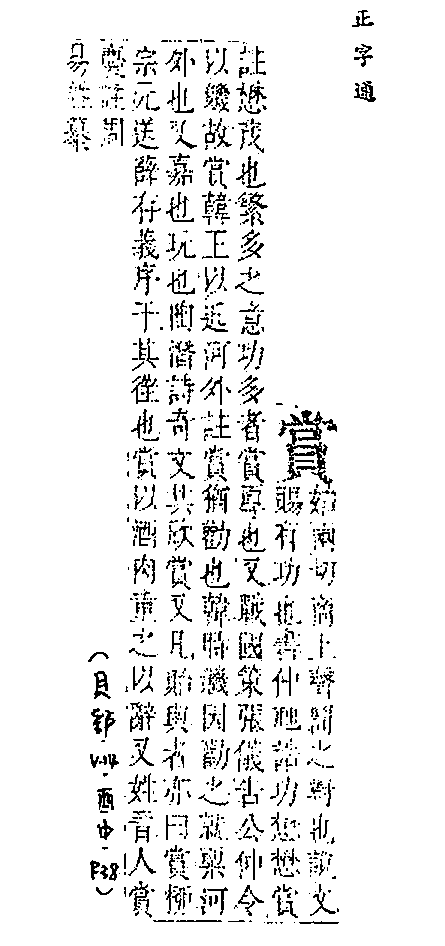 正字通
賞
始兩切商上聲罰之對也說文
賜有功也書仲虺誥功懋懋賞
註懋茂也繁多之意功多者賞厚也又戰國策張儀告公仲令
以饑故賞韓王以近河外註賞猶勸也韓時饑因勸之就粟河
外也又嘉也玩也陶潛詩奇文共欣賞又凡貽與者亦曰賞柳
宗元送薛存義序于其往也賞以酒肉重之以辭又姓晉人賞
慶註周
易姓纂
(貝部·V.14·酉中·P38)